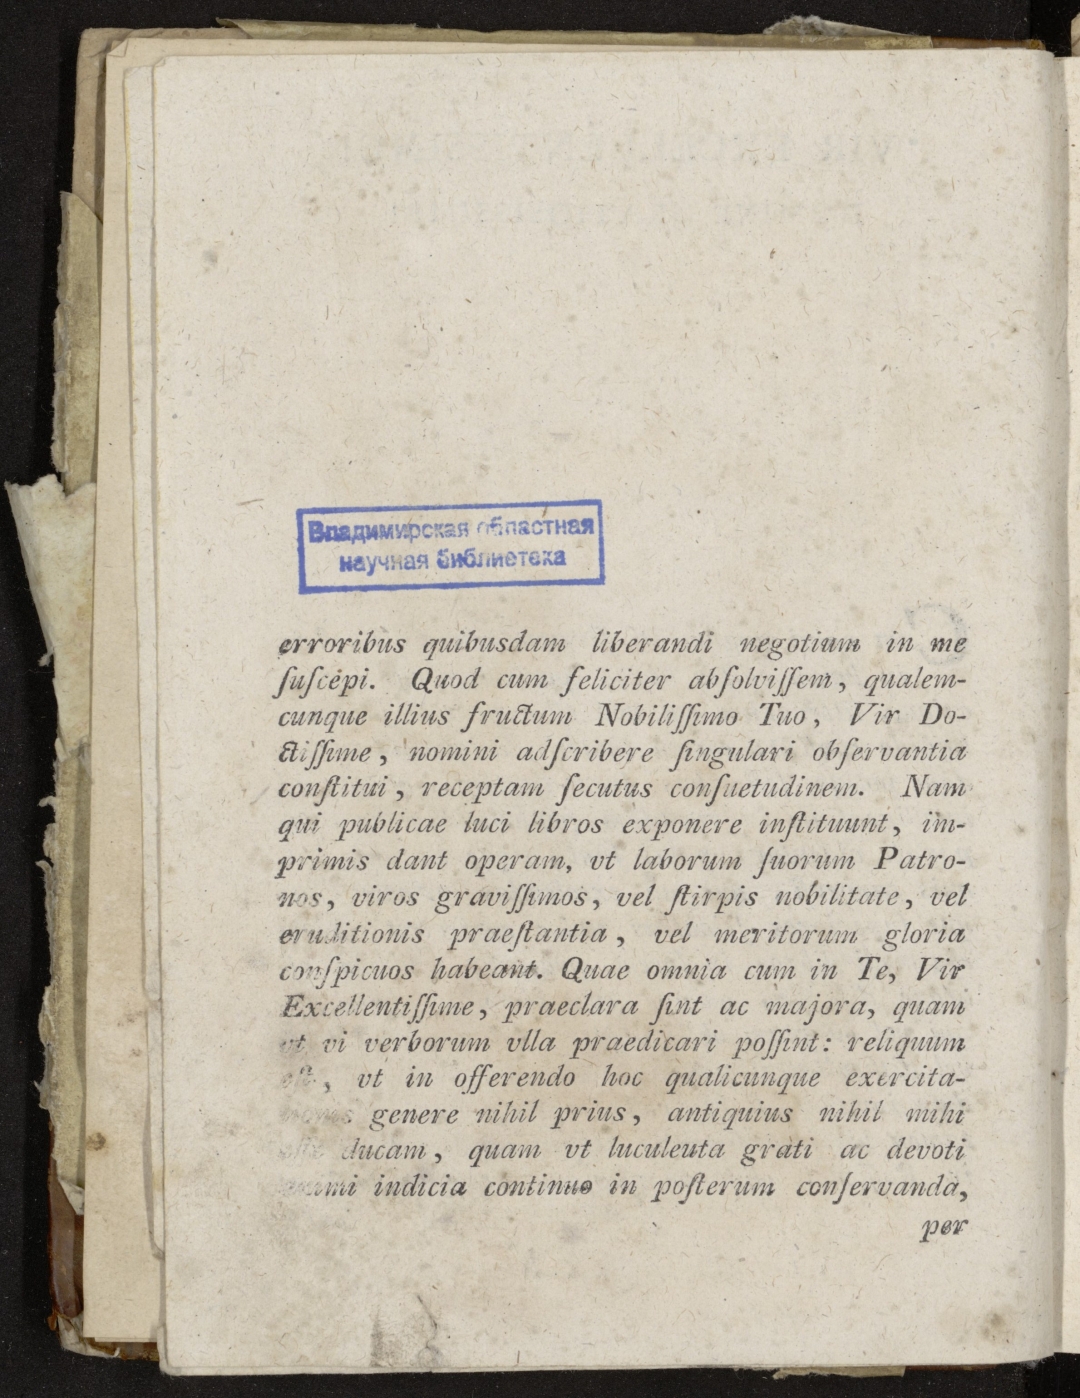 Владимирская областная
научная библиотека
erroribus quibusdam liberandi negotium in me
ſuſcepi. Quod cum feliciter abſolviſſem, qualem-
cunque illius fructum Nobiliſſimo Tuo, Vir Do-
ctiſſime, nomini adſcribere ſingulari obſervantia
conſtitui, receptam ſecutus conſuetudinem. Nam
qui publicae luci libros exponere inſtituunt, im-
primis dant operam, vt laborum ſuorum Patro-
nos, viros graviſſimos, vel ſtirpis nobilitate, vel
eruditionis praeſtantia, vel meritorum gloria
conſpicuos habeant. Quae omnia cum in Te, Vir
Excellentiſſime, praeclara ſint ac majora, quam
vt vi verborum vlla praedicari poſſint: reliquum
eſt, vt in offerendo hoc qualicunque exercita-
genere nihil prius, antiquius nihil mihi
ducam, quam vt luculeuta grati ac devoti
animi indicia continuo in poſterum conſervanda,
per